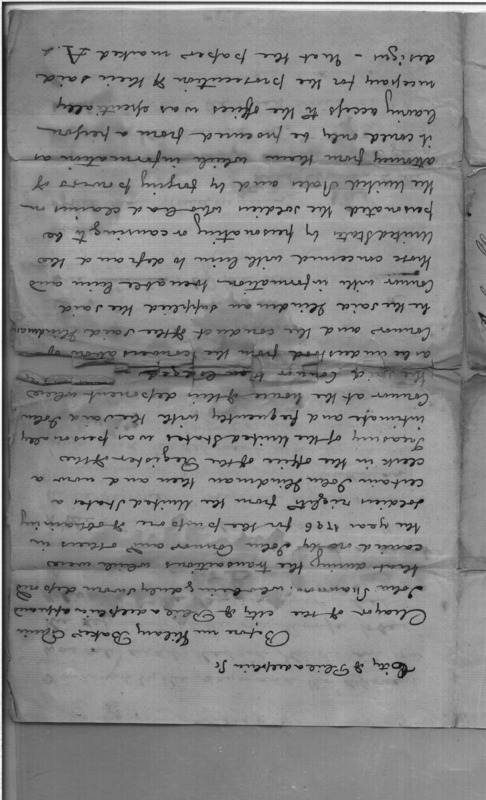 City of Philadelphia Ss
Before me Hilary Baker Esquire
Mayor of the city of Philadelphia appeared
John Shannon, who being duly sworn deposed
that during the transactions which were
carried on by John Connor and others in
the year 1796 for the purpose of obtaining
soldiers rights from the United States a
certain John Hindman then and now a
clerk in the office of the Register of the
Treasury of the United States was personally
intimate and frequently with the said John
Connor at the house of this deponent where
the said Connor
as he understood from the conversation of
Connor and the conduct of the said Hindman
he the said Hindman supplied the said
Connor with information to enable him and
those concerned with him to defraud the
United States by personating or causing to be
personated the soldiers who had claims on
the United States and by forging powers of
attorney from them which information as
it could only be procured from a person
having access to the offices was essentially
necessary for the prosecution of their said
designs - that the paper marked A. &